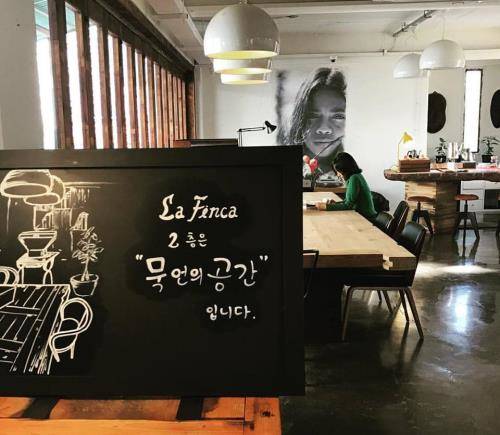 La Finca
2층은
"묵언의 공간"
입니다.